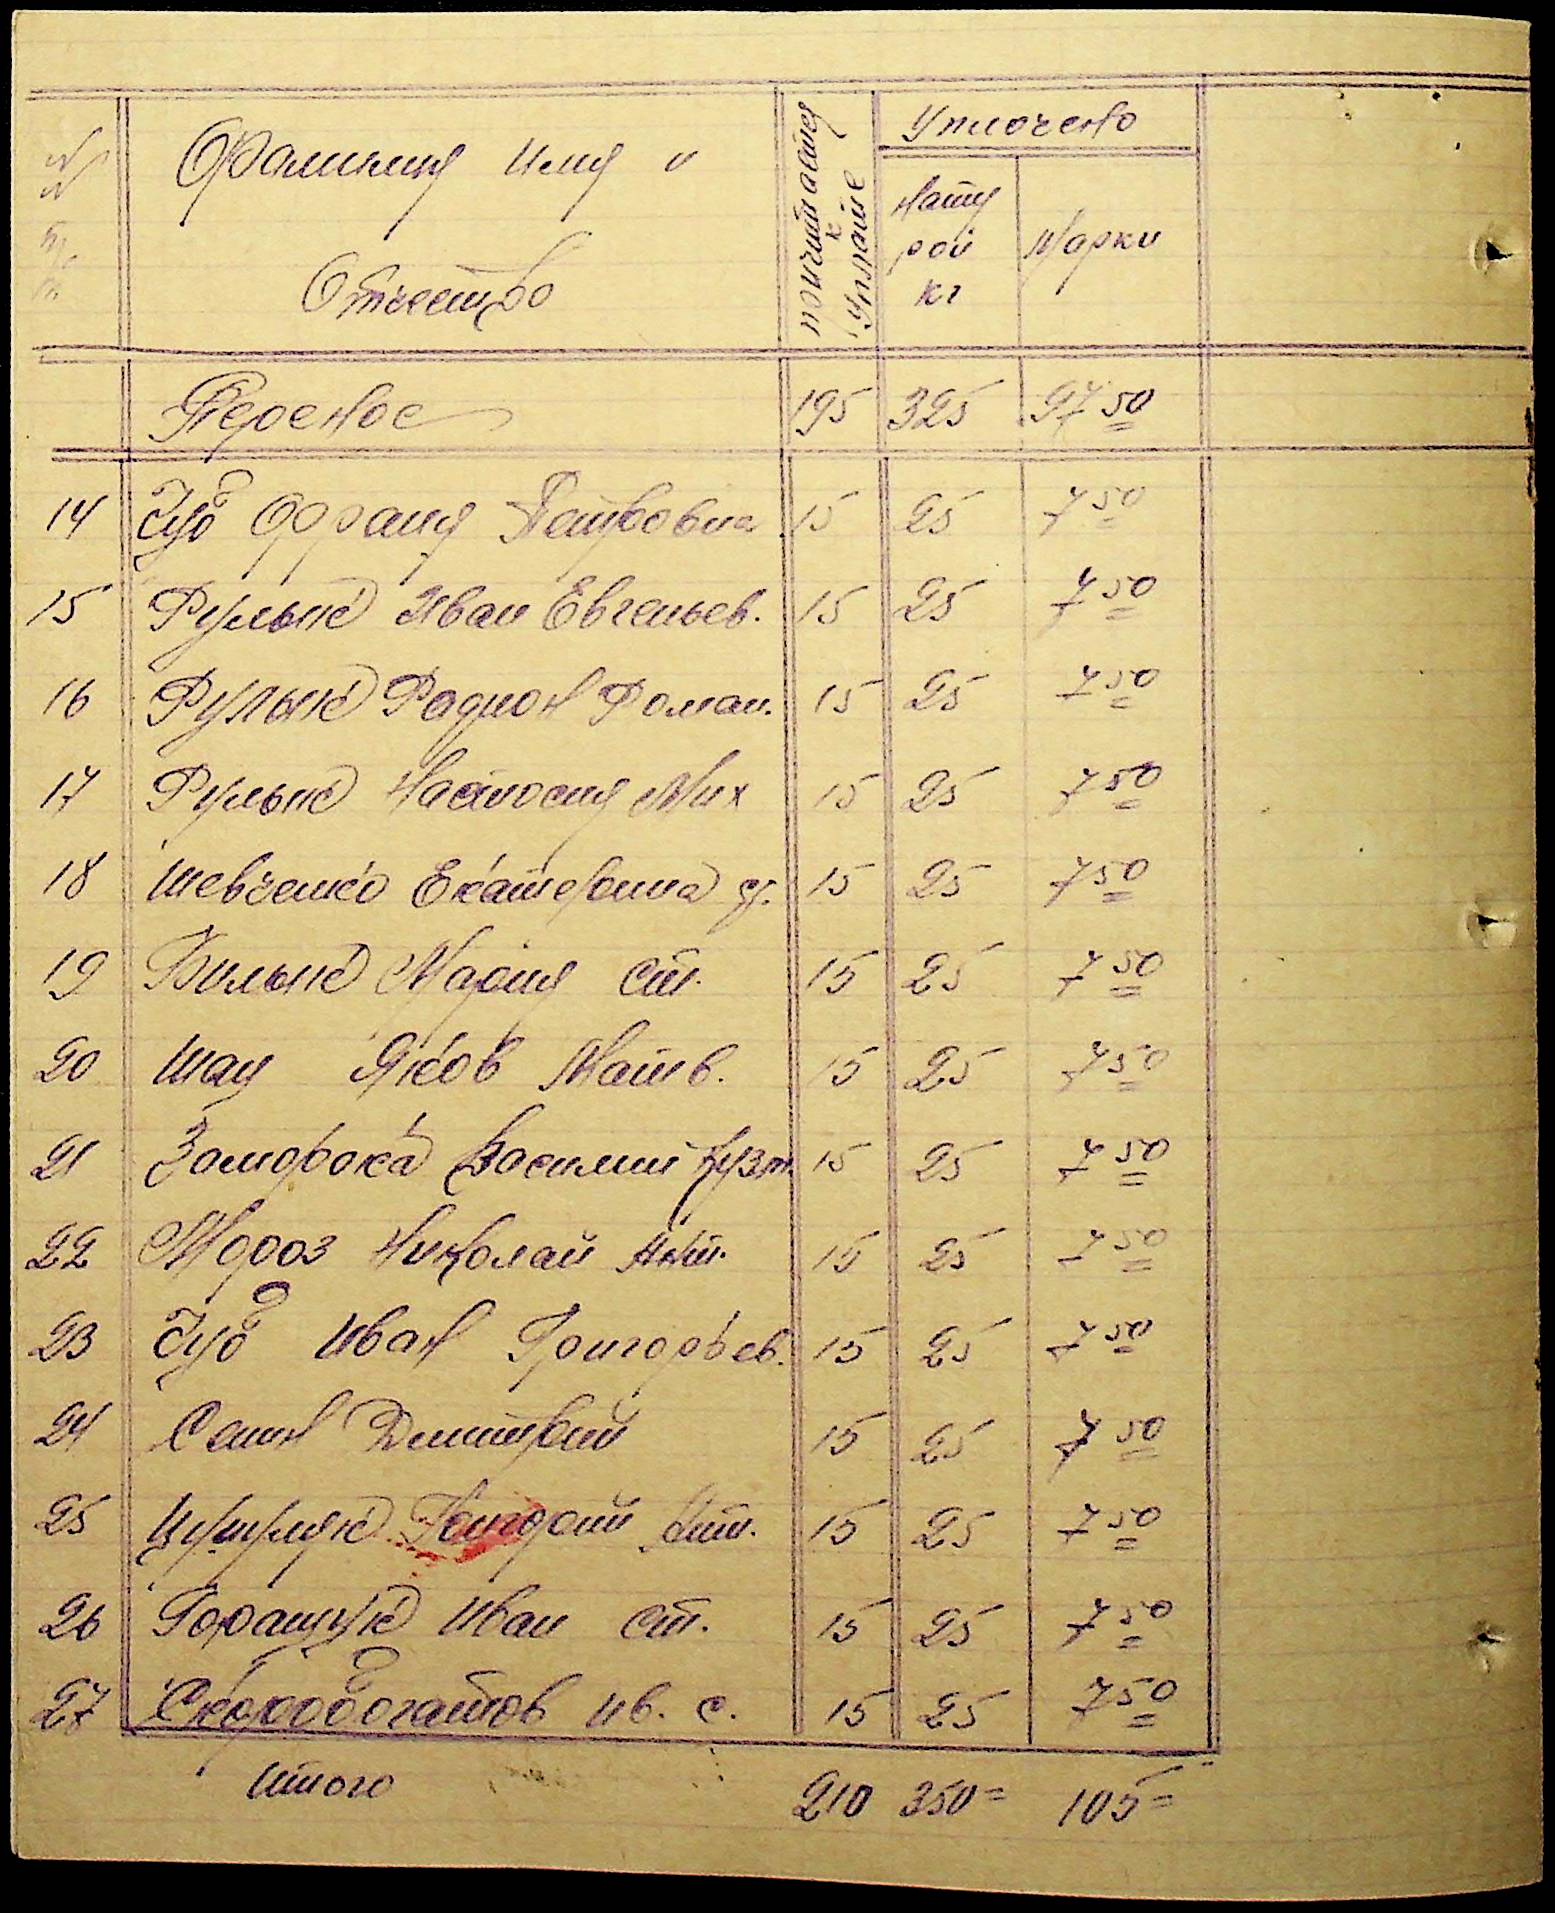 №№ п/п Фамилия Имя и Отчество причитается к Уплате Уплочено
Натурой кг Марки
Перенос 195 325 97 50
14 Чуб Фрася Петровна 15 25 7 50
15 Рулькé Иван Евгеньев. 15 25 7 50
16 Рулькé Радион Роман. 15 25 7 50
17 Рулькé Настосия Мих 15 25 7 50
18 Шевченко Екатерина 15 25 7 50
19 Мария Ст. 15 25 7 50
20 Шац Яков Матв. 15 25 7 50
21 Заморока Василий Кузм. 15 25 7 50
22 Мороз Николай Ант. 15 25 7 50
23 Чуб Иван Григорьев. 15 25 7 50
24 Дмитрий 15 25 7 50
25 Григорий 15 25 7 50
26 Горащук Иван Ст. 15 25 7 50
27 Скоробогатов Ив. С. 15 25 7 50
Итого 210 350= 105=